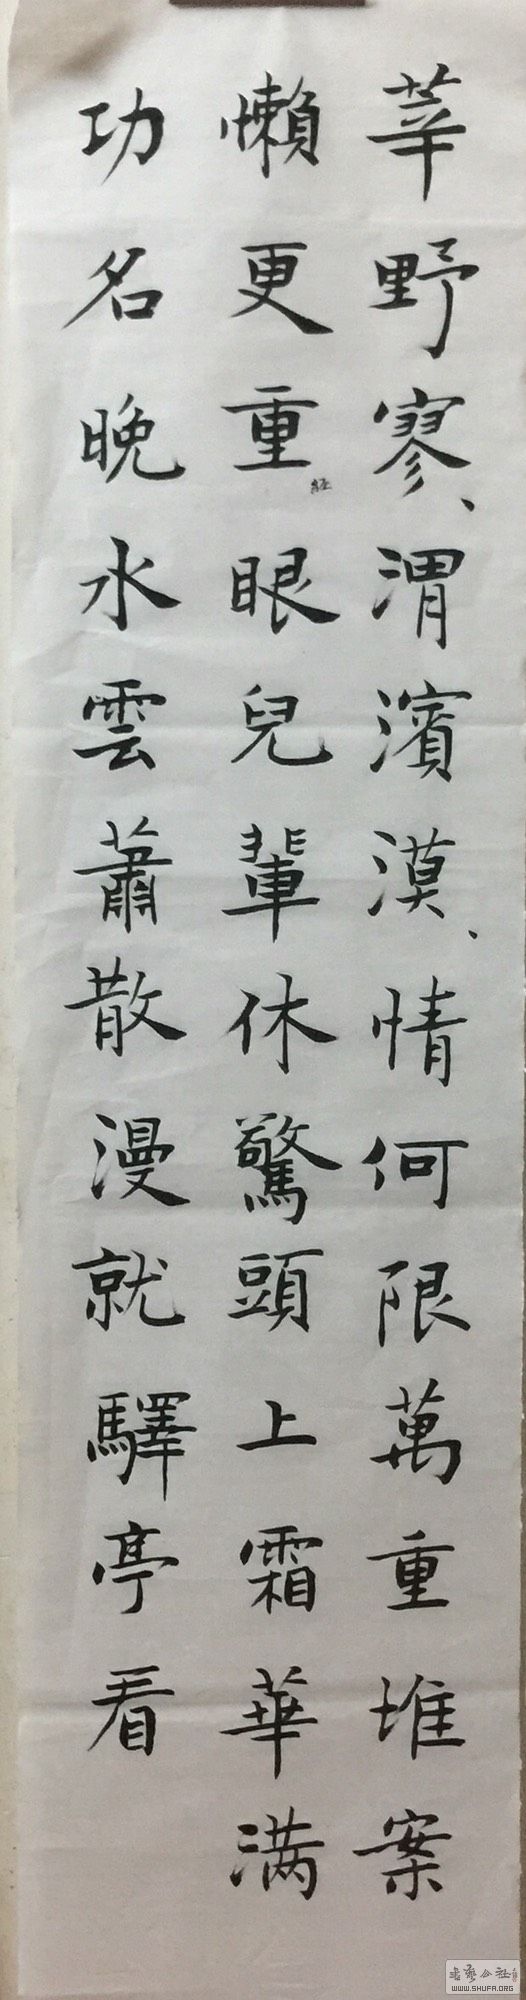 莘野寥、渭濱漠、情何限萬重堆案
懶更重經眼兒輩休驚頭上霜華满
功名晚水雲蕭散漫就驛亭看
WWW.SHUFA.ORG